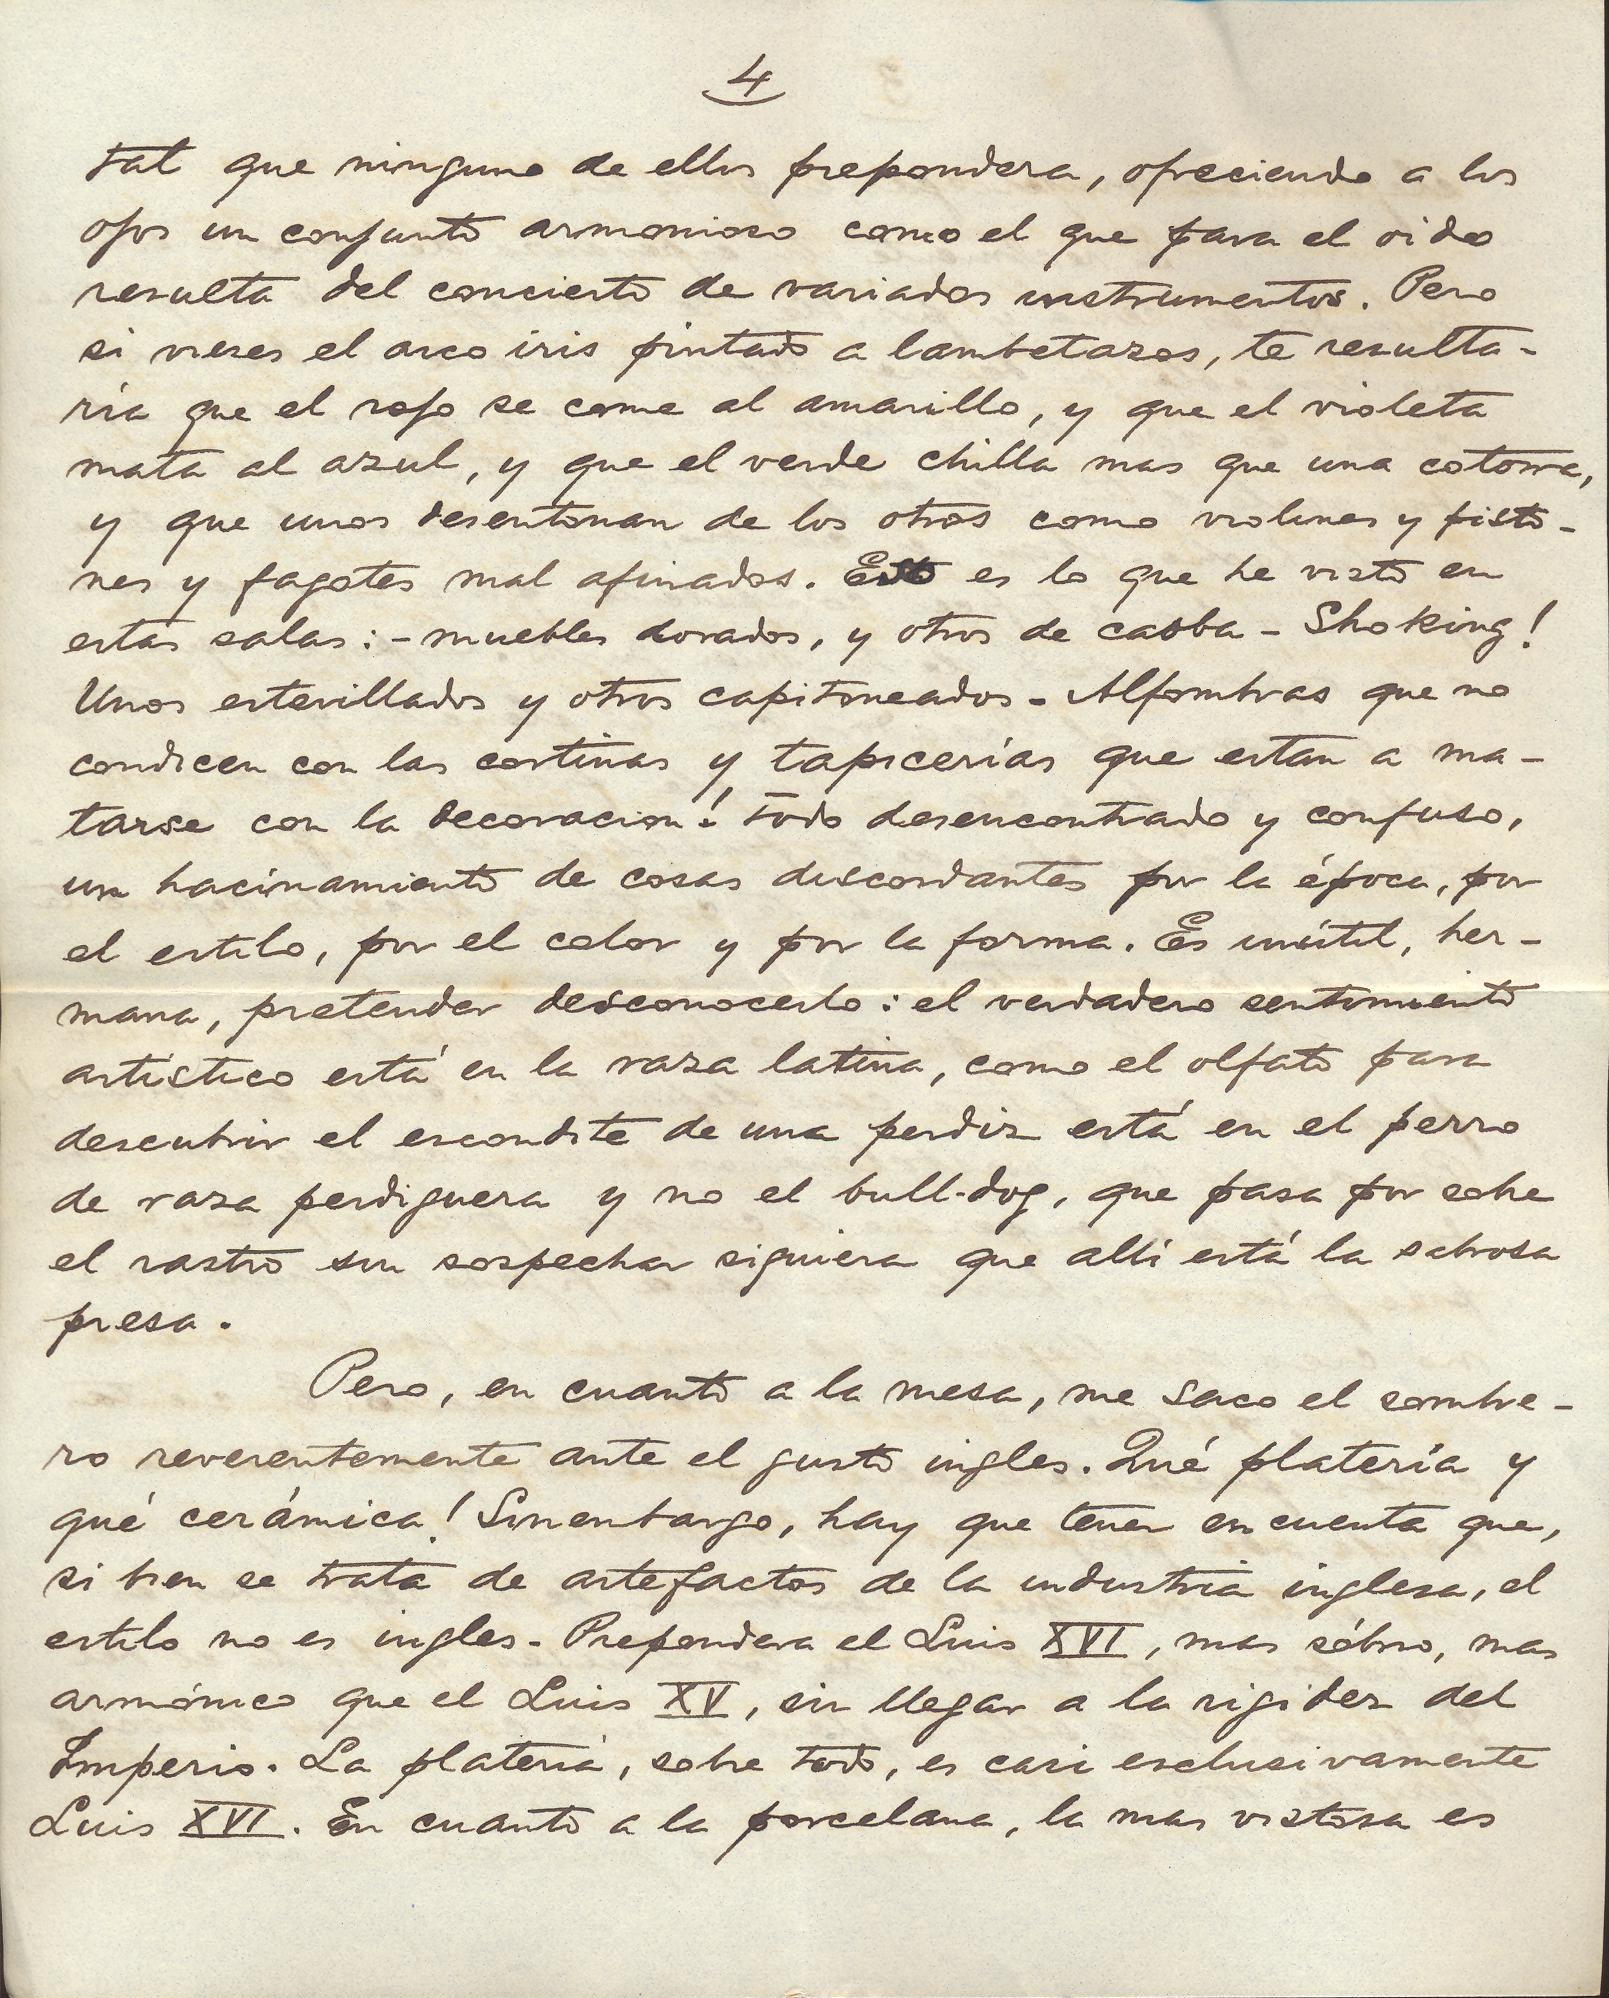 4
tal que ninguno de ellos prepondera, ofreciendo a los
ojos un conjunto armonioso como el que para el oido
resulta del concierto de variados instrumentos. Pero
si vieses el arco iris pintado a lambetazos, te resulta-
ría que el rojo se come al amarillo, y que el violeta
mata al azul, y que el verde chilla mas que una cotorra,
y que unos desentonan de los otros como violines y pisto-
nes y fagotes mal afinados. Esto es lo que he visto en
estas salas: - muebles dorados, y otros de caoba - Shoking!
Unos esterillados y otros capitoneados - Alfombras que no
condicen con las cortinas y tapicerías que estan a ma-
tarse con la decoracion! todo desencontrado y confuso,
un hacinamiento de cosas discordantes por la época, por
el estilo, por el color y por la forma. Es inútil, her-
mana, pretender desconocerlo: el verdadero sentimiento
artístico está en la raza latina, como el olfato para
descubrir el escondite de una perdiz está en el perro
de raza perdiguera y no el bull-dog, que pasa por sobre
el rastro sin sospechar siquiera que allí está la sabrosa
presa.
Pero, en cuanto a la mesa, me saco el sombre-
ro reverentemente ante el gusto ingles. Qué platería y
qué cerámica! Sinembargo, hay que tener en cuenta que,
si bien se trata de artefactos de la industria inglesa, el
estilo no es ingles - Prepondera el Luis XVI, mas sóbrio, mas
armónico que el Luis XV, sin llegar a la rigidez del
Imperio. La platería, sobre todo, es casi esclusivamente
Luis XVI. En cuanto a la porcelana, la mas vistosa es